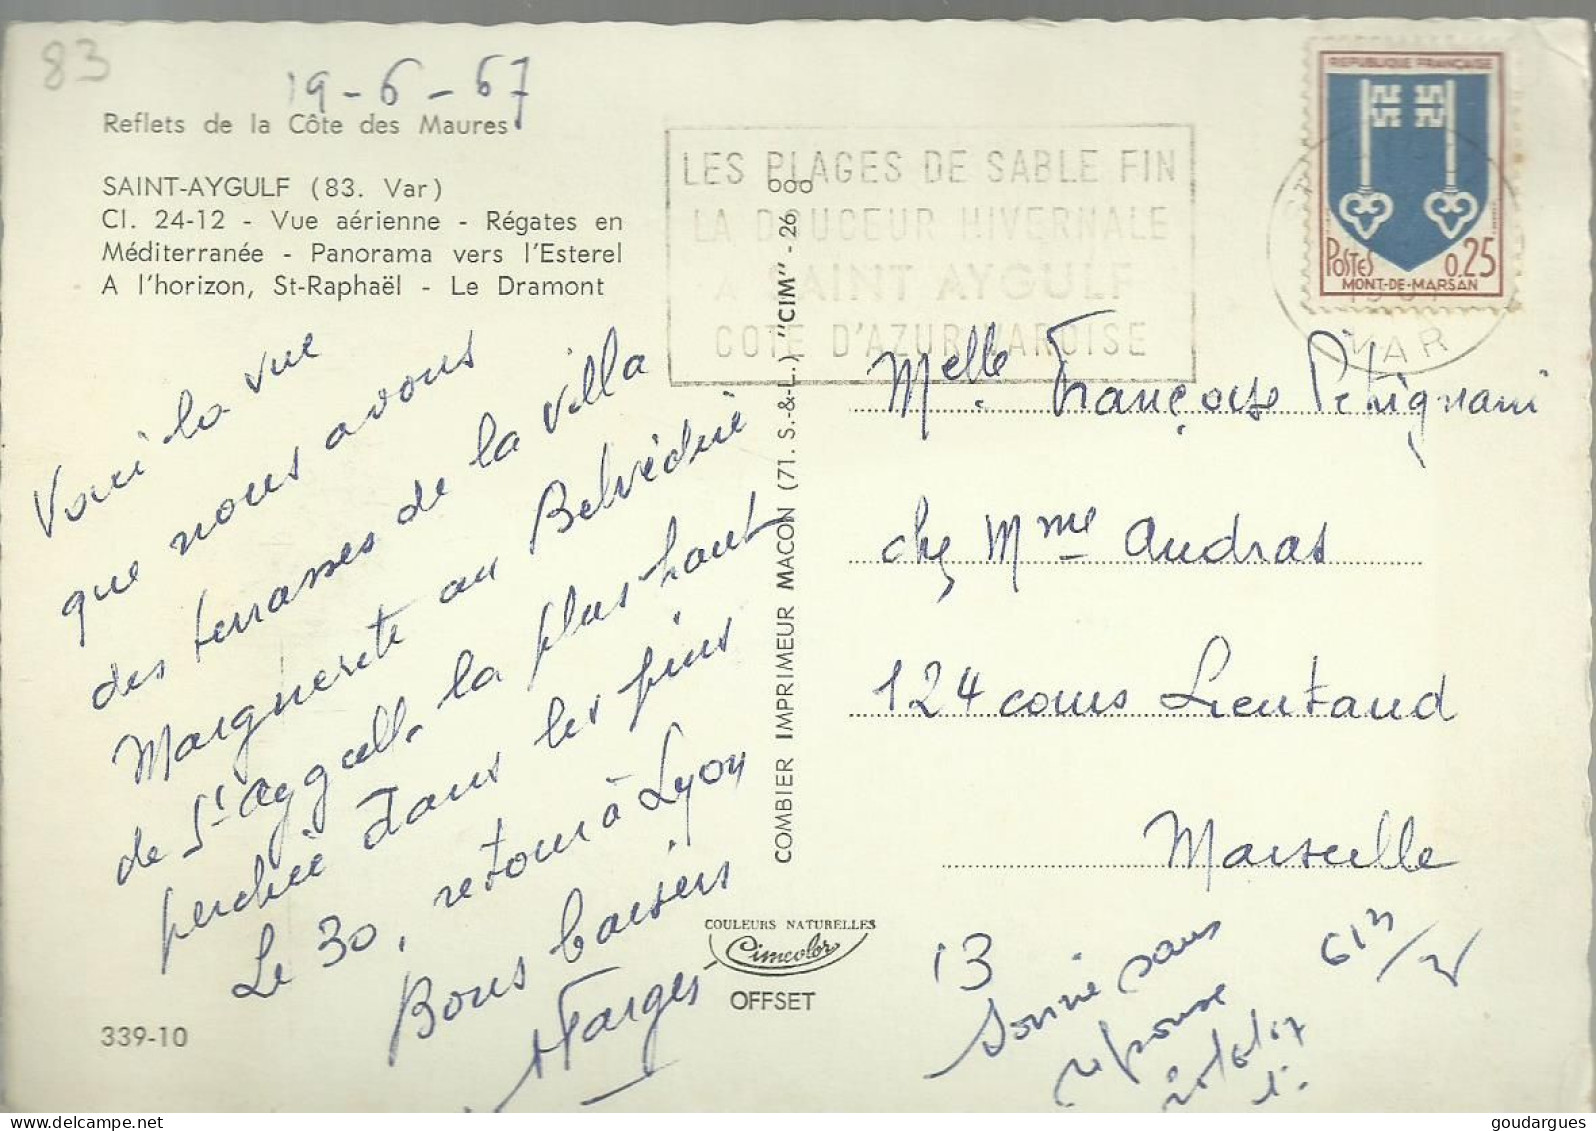 83
19-6-67
Reflets de la Côte des Maures
SAINT-AYGULF (83. Var)
Cl. 24-12 - Vue aérienne - Régates en
Méditerranée - Panorama vers l'Esterel
A l'horizon, St-Raphaël - Le Dramont
Voici la vue
que nous avons
des terrasses de la villa
Marguerite au Belvédère
de St Aygulf. la plus haut
perchée dans les pins
Le 30, retour à Lyon
Bons baisers
Farges
339-10
COMBIER IMPRIMEUR MACON (71. S.-&-L.) "CIM" - 26
COULEURS NATURELLES
Cimcolor
OFFSET
LES PLAGES DE SABLE FIN
LA DOUCEUR HIVERNALE
A SAINT AYGULF
COTE D'AZUR VAROISE
VAR
REPUBLIQUE FRANÇAISE
POSTES 0,25
MONT-DE-MARSAN
Melle Françoise
chez Mme Audras
124 cours Lieutaud
Marseille
13
Sonné sans
réponse
613
goudargues